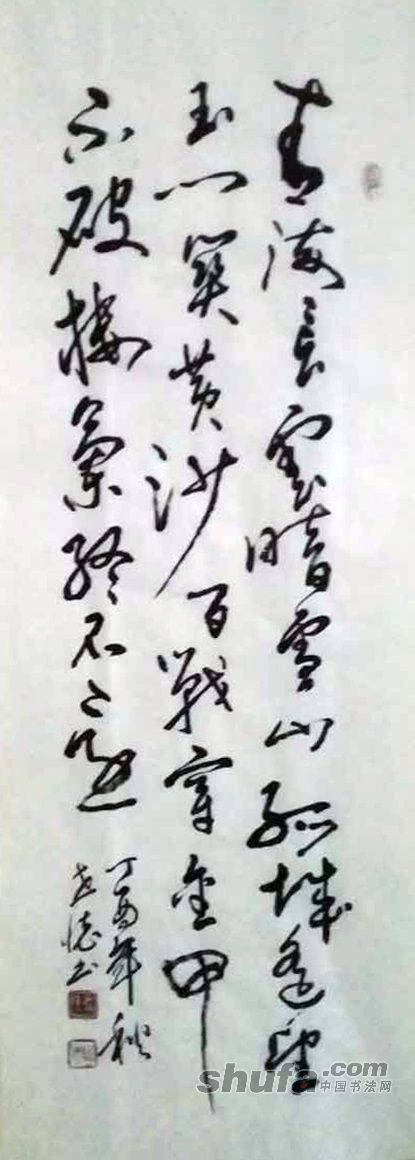 青海長雲暗雪山孤城遙望
玉門關黃沙百戰穿金甲
不破樓蘭終不還
丁酉年秋
书
shufa.com
中国书法网